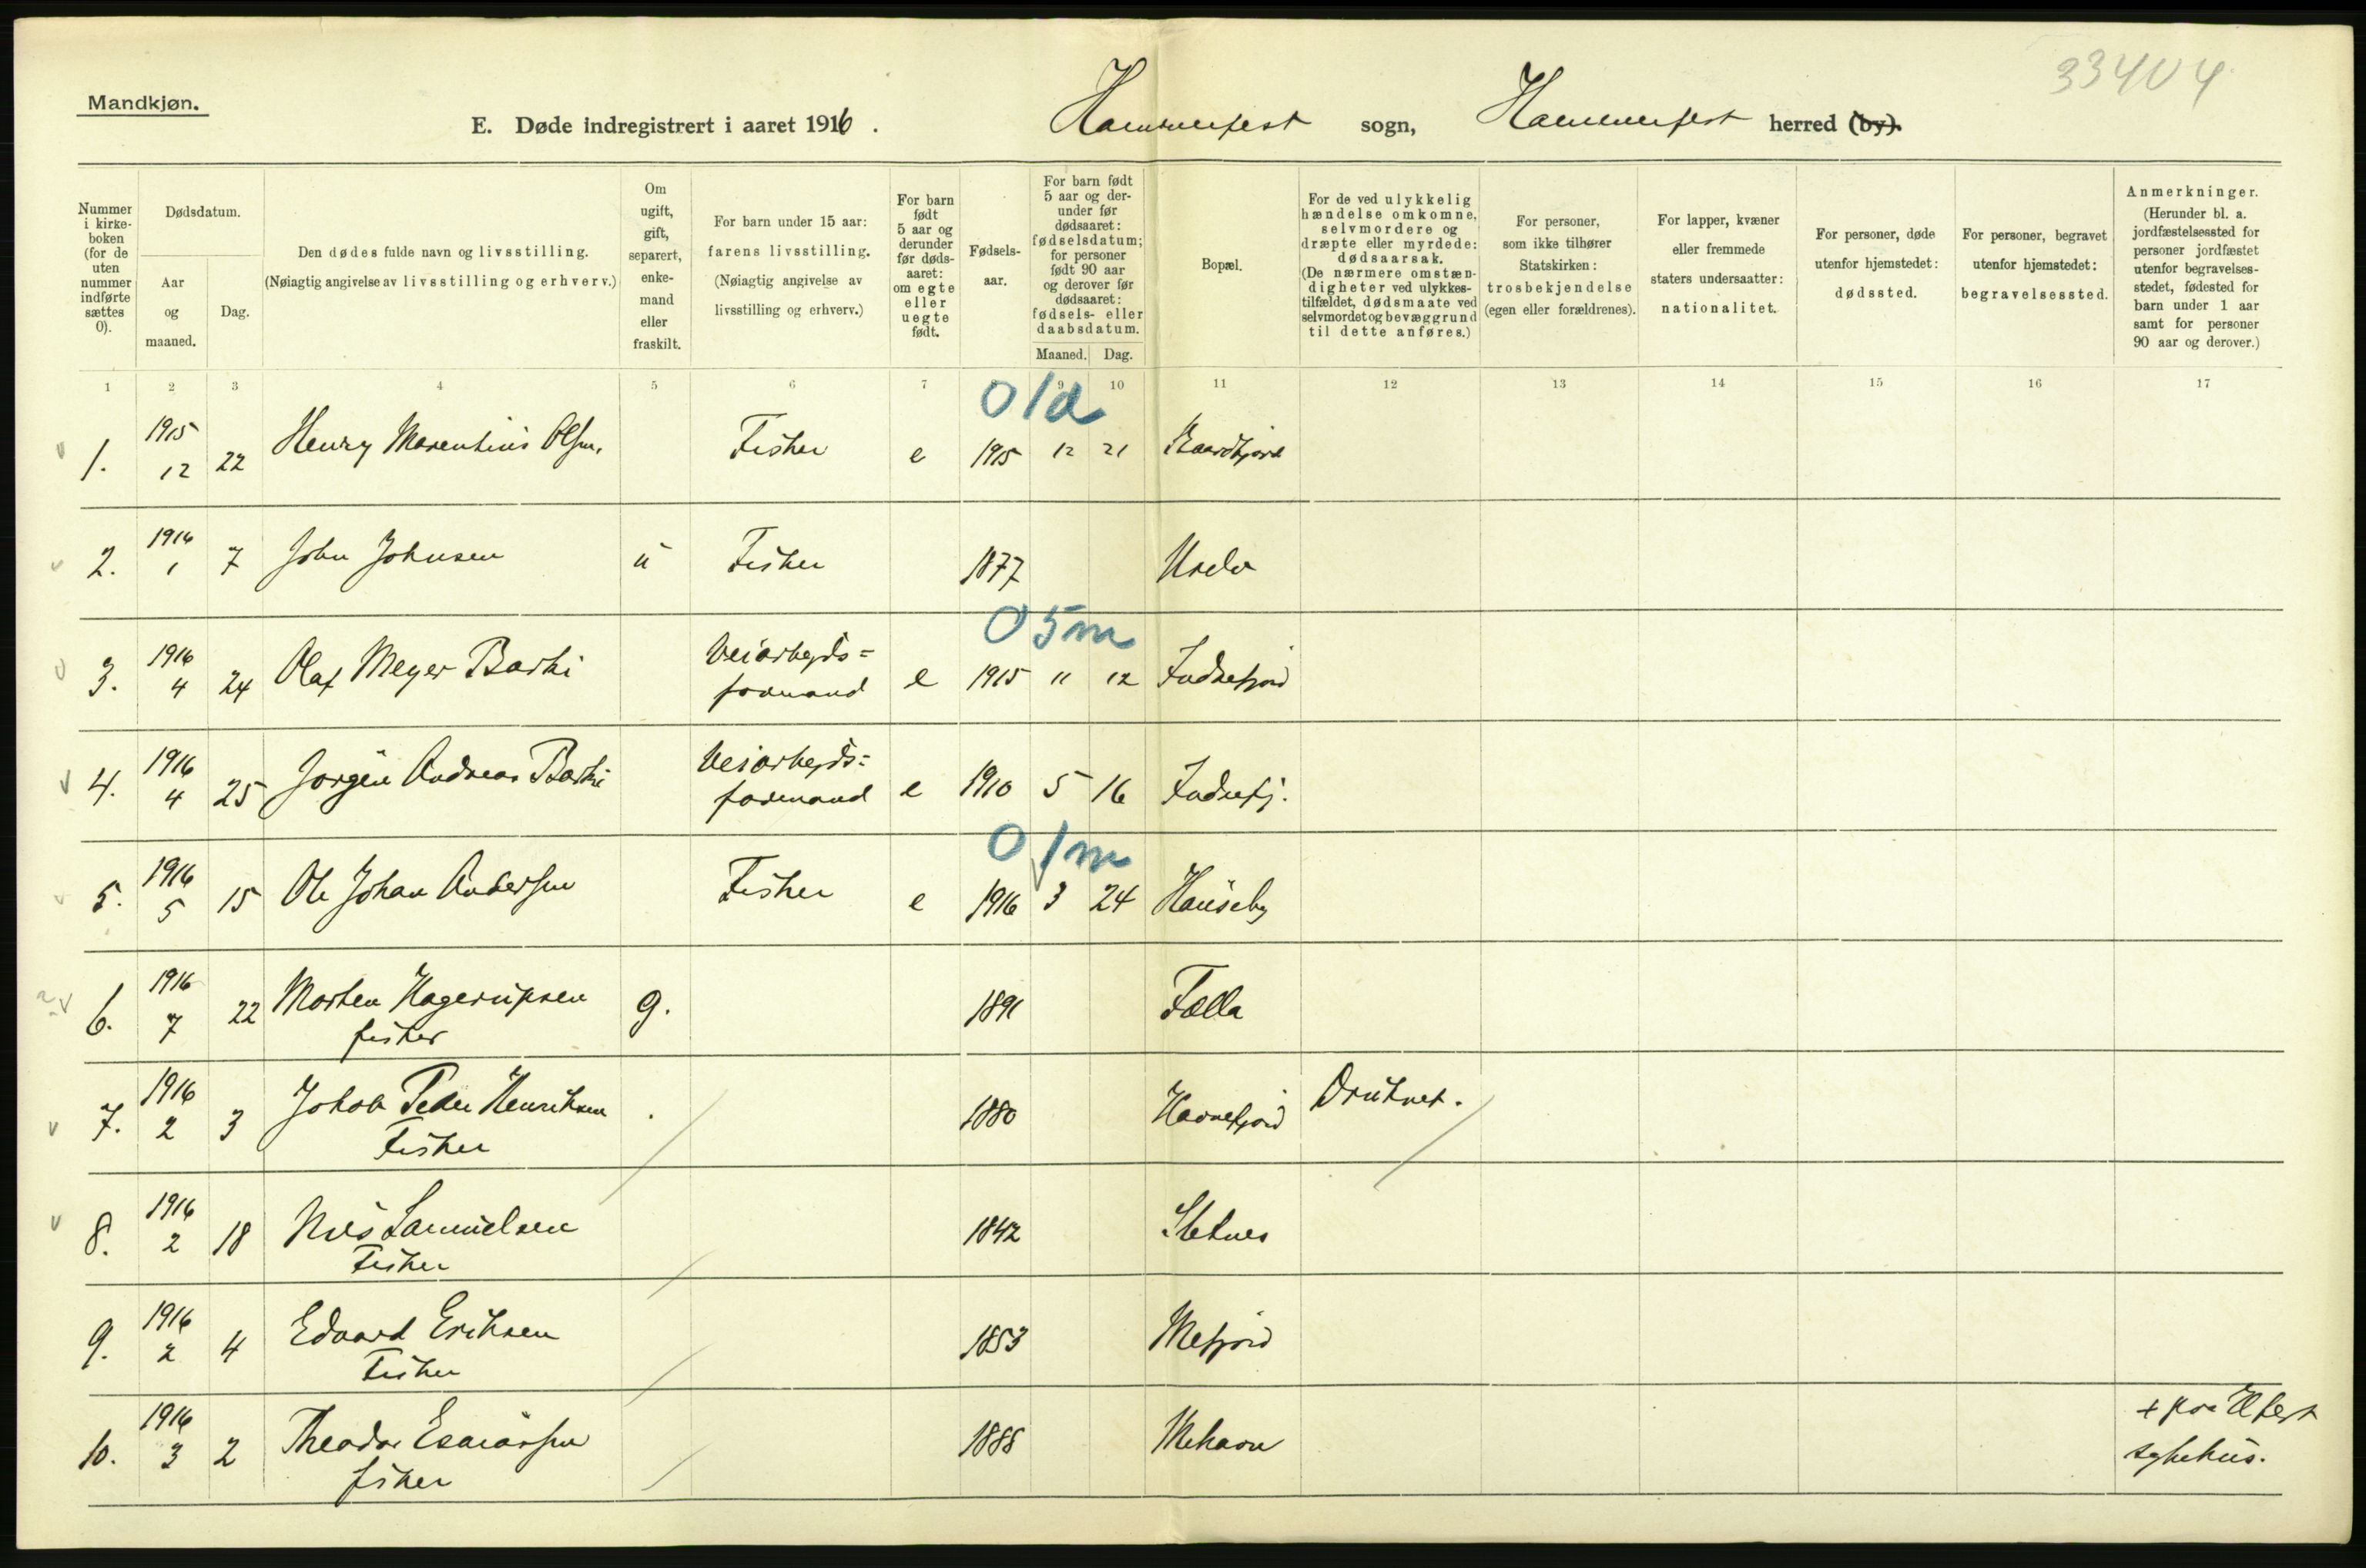 33404
Mandkjøn.
E. Døde indregistrert i aaret 1916. Hammerfest sogn, Hammerfest herred (by).
Nummer i kirkeboken (for de uten nummer indførte sættes 0).
Dødsdatum.
Aar og maaned.
Dag.
Den dødes fulde navn og livsstilling.
(Nøiagtig angivelse av livsstilling og erhverv.)
Om ugift, gift, separert, enkemand eller fraskilt.
For barn under 15 aar:
farens livsstilling.
(Nøiagtig angivelse av livsstilling og erhverv.)
For barn født 5 aar og derunder før dødsaaret: om egte eller uegte født.
Fødselsaar.
For barn født 5 aar og derunder før dødsaaret: fødselsdatum; for personer født 90 aar og derover før dødsaaret: fødsels- eller daabsdatum.
Maaned. Dag.
Bopæl.
For de ved ulykkelig hændelse omkomne, selvmordere og dræpte eller myrdede: dødsaarsak.
(De nærmere omstændigheter ved ulykkestilfældet, dødsmaate ved selvmordet og bevæggrund til dette anføres.)
For personer, som ikke tilhører Statskirken: trosbekjendelse (egen eller forældrenes).
For lapper, kvæner eller fremmede staters undersaatter: nationalitet.
For personer, døde utenfor hjemstedet: dødssted.
For personer, begravet utenfor hjemstedet: begravelsessted.
Anmerkninger.
(Herunder bl. a. jordfæstelsessted for personer jordfæstet utenfor begravelsesstedet, fødested for barn under 1 aar samt for personer 90 aar og derover.)
1 2 3 4 5 6 7 9 10 11 12 13 14 15 16 17
0 1 d
1. 1915 12 22 Henry Marentius Olsen. Fisker e 1915 12 21
2. 1916 1 7 John Johnsen u Fisker 1877
0 5 m
3. 1916 4 24 Olaf Meyer Barki Veiarbejds=formand e 1915 11 12 Indrefjord
4. 1916 4 25 Jørgen Andreas Barki Veiarbejds=formand e 1910 5 16 Indrefj.
0 1 m
5. 1916 5 15 Ole Johan Andersen Fisker e 1916 3 24 Hauseby
6. 1916 7 22 Morten Hagerupsen g. 1891 Fælla
fisker
7. 1916 2 3 Jakob Peder Henriksen 1880 Havnefjord Druknet.
Fisker
8. 1916 2 18 Nils Samuelsen 1842 Sletnes
Fisker
9. 1916 2 4 Edvard Eriksen 1853 Mefjord
Fisker
10. 1916 3 2 Theodor Esaiassen 1888 Mehavn + paa Hfest
fisker sykehus.